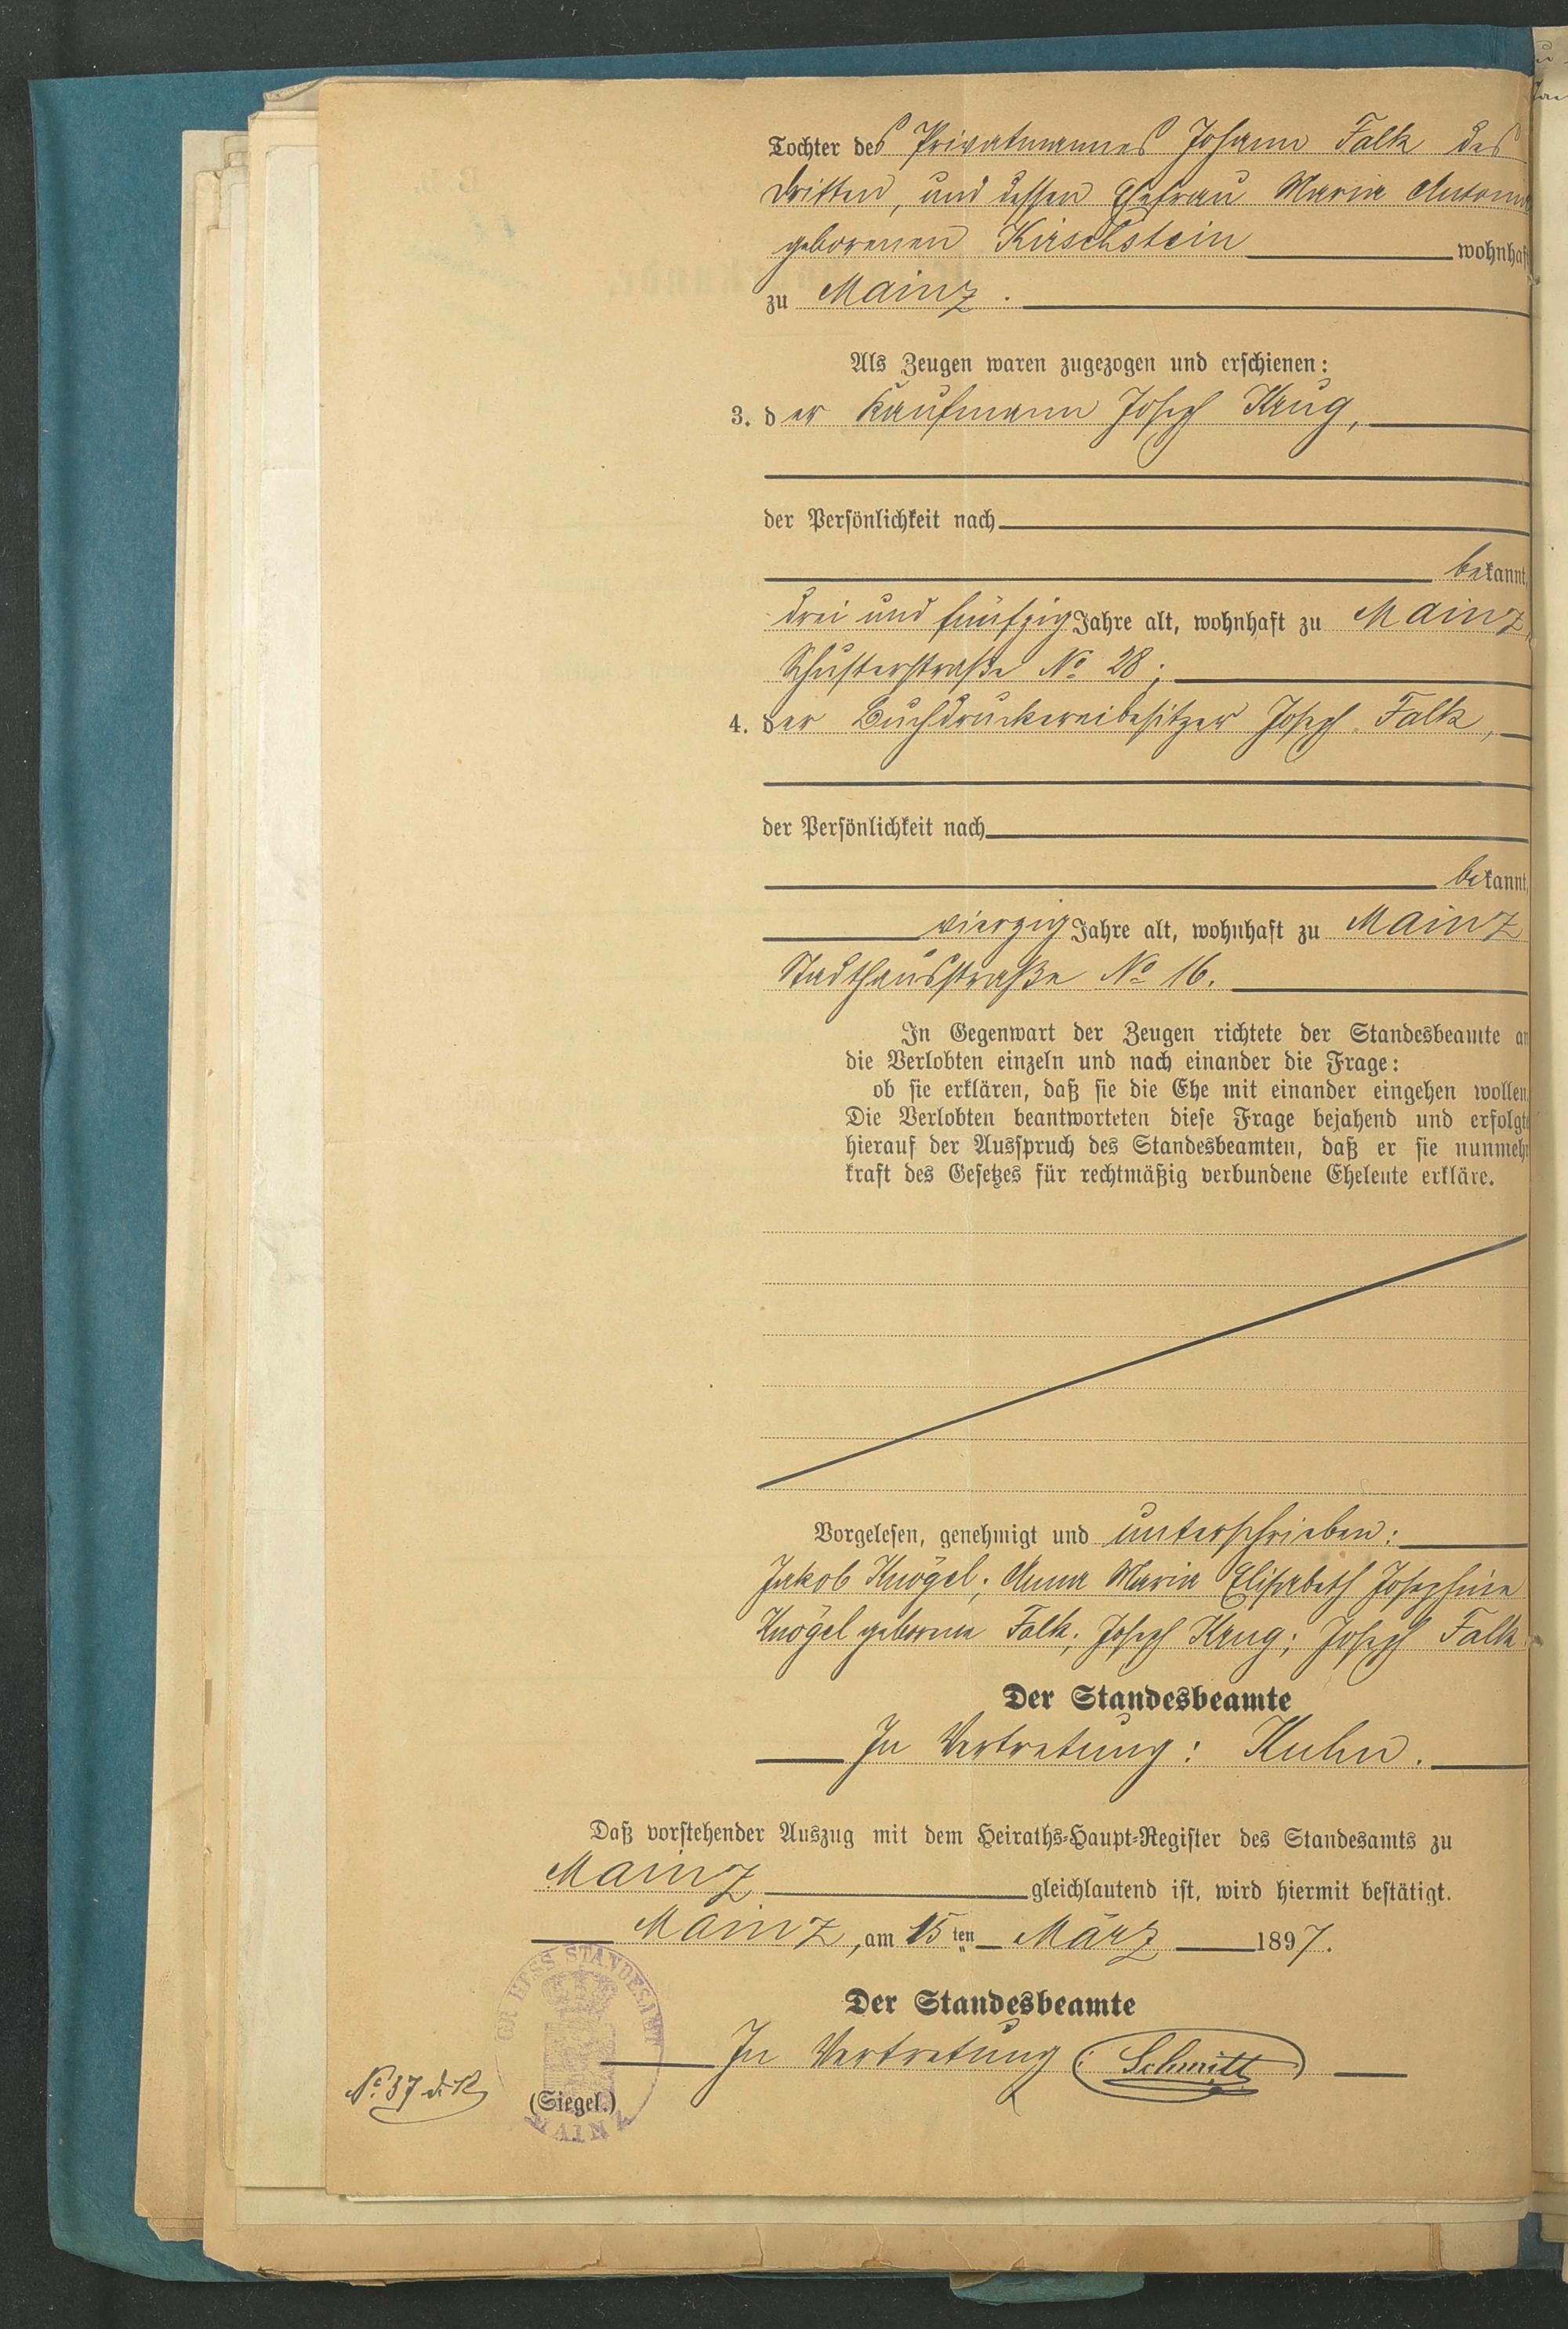 Tochter des Privatmannes Johann Falk des
Dritten, und dessen Ehefrau Maria Antonia
geborenen Kirschstein wohnhaft
zu Mainz.
Als Zeugen waren zugezogen und erschienen:
3. der Kaufmann Joseph Krug,
der Persönlichkeit nach
bekannt,
drei und fünfzig Jahre alt, wohnhaft zu Mainz
Schusterstraße No 28;
4. der Buchdruckereibesitzer Joseph Falk,
der Persönlichkeit nach
bekannt,
vierzig Jahre alt, wohnhaft zu Mainz
Stadthausstraße No 16.
In Gegenwart der Zeugen richtete der Standesbeamte an
die Verlobten einzeln und nach einander die Frage:
ob sie erklären, daß sie die Ehe mit einander eingehen wollen.
Die Verlobten beantworteten diese Frage bejahend und erfolgte
hierauf der Ausspruch des Standesbeamten, daß er sie nunmehr
kraft des Gesetzes für rechtmäßig verbundene Eheleute erkläre.
Vorgelesen, genehmigt und unterschrieben:
Jakob Knögel; Anna Maria Elisabeth Josephine
Knögel geborene Falk; Joseph Krug; Joseph Falk.
Der Standesbeamte
In Vertretung: Kuhn.
Daß vorstehender Auszug mit dem Heiraths-Haupt-Register des Standesamts zu
Mainz gleichlautend ist, wird hiermit bestätigt.
Mainz, am 15ten März 1897.
Der Standesbeamte
In Vertretung: Schmitt
GR HESS STANDESAMT
MAINZ
(Siegel.)
No 37 d. R